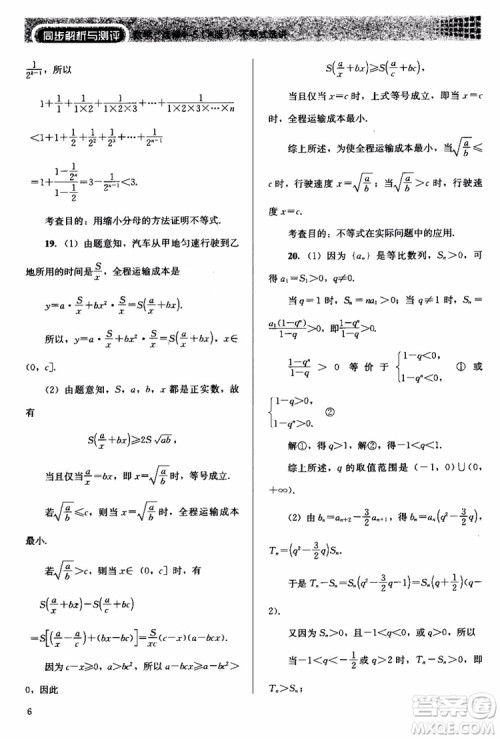 同步解析与测评
不等式选讲
1/2^{n-1}，所以
1+1+1/(1×2)+1/(1×2×3)+…+1/(1×2×3×…×n)
<1+1+1/2+1/2²+…+1/2^{n-1}
=1+(1-1/2^n)/(1-1/2)=3-1/2^{n-1}<3.
考查目的：用缩小分母的方法证明不等式.
19.（1）由题意知，汽车从甲地匀速行驶到乙
地所用的时间是S/x，全程运输成本是
y=a·S/x+bx²·S/x=S(a/x+bx).
所以，所求函数是y=S(a/x+bx)，x∈
(0，c].
（2）由题意知，S，a，b，x都是正实数，故有
S(a/x+bx)≥2S√ab，
当且仅当a/x=bx，即x=√(a/b)时，等号成立.
若√(a/b)≤c，则当x=√(a/b)时，全程运输成本
最小.
若√(a/b)>c，则当x∈(0，c]时，有
S(a/x+bx)-S(a/c+bc)
=S[(a/x-a/c)+(bx-bc)]=S/(xc)(c-x)(a-bcx).
因为c-x≥0，a>bc²，所以a-bcx≥a-bc²>
0，因此
6
S(a/x+bx)≥S(a/c+bc)，
当且仅当x=c时，上式等号成立.
也即，当x=c时，全程运输成本最小.
综上所述，为使全程运输成本最小，当√(a/b)≤c
时，行驶速度x=√(a/b)；当√(a/b)>c时，行驶速度
x=c.
考查目的：不等式在实际问题中的应用.
20.（1）因为{a_n}是等比数列，S_n>0，可
得a₁=S₁>0，q≠0.
当q=1时，S_n=na₁>0；当q≠1时，S_n=
a₁(1-q^n)/(1-q)>0，即(1-q^n)/(1-q)>0(n=1，2，…).
(1-q^n)/(1-q)>0等价于{1-q<0 1-q^n<0 ①或
{1-q>0 1-q^n>0 ②
解①，得q>1；解②，得-1<q<1.
综上所述，q的取值范围是(-1，0)∪(0，
+∞).
（2）由b_n=a_{n+2}-3/2a_{n+1}，得b_n=a_n(q²-3/2q)，
T_n=(q²-3/2q)S_n.
于是T_n-S_n=S_n(q²-3/2q-1)=S_n(q+1/2)(q-
2).
又因为S_n>0，且-1<q<0或q>0，所以
当-1<q<-1/2或q>2时，T_n-S_n>0，即
T_n>S_n；